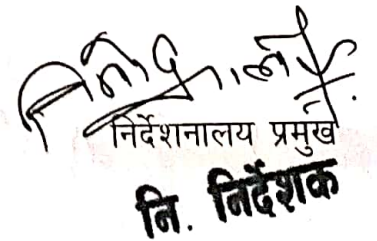 निर्देशनालय प्रमुख
नि. निर्देशक